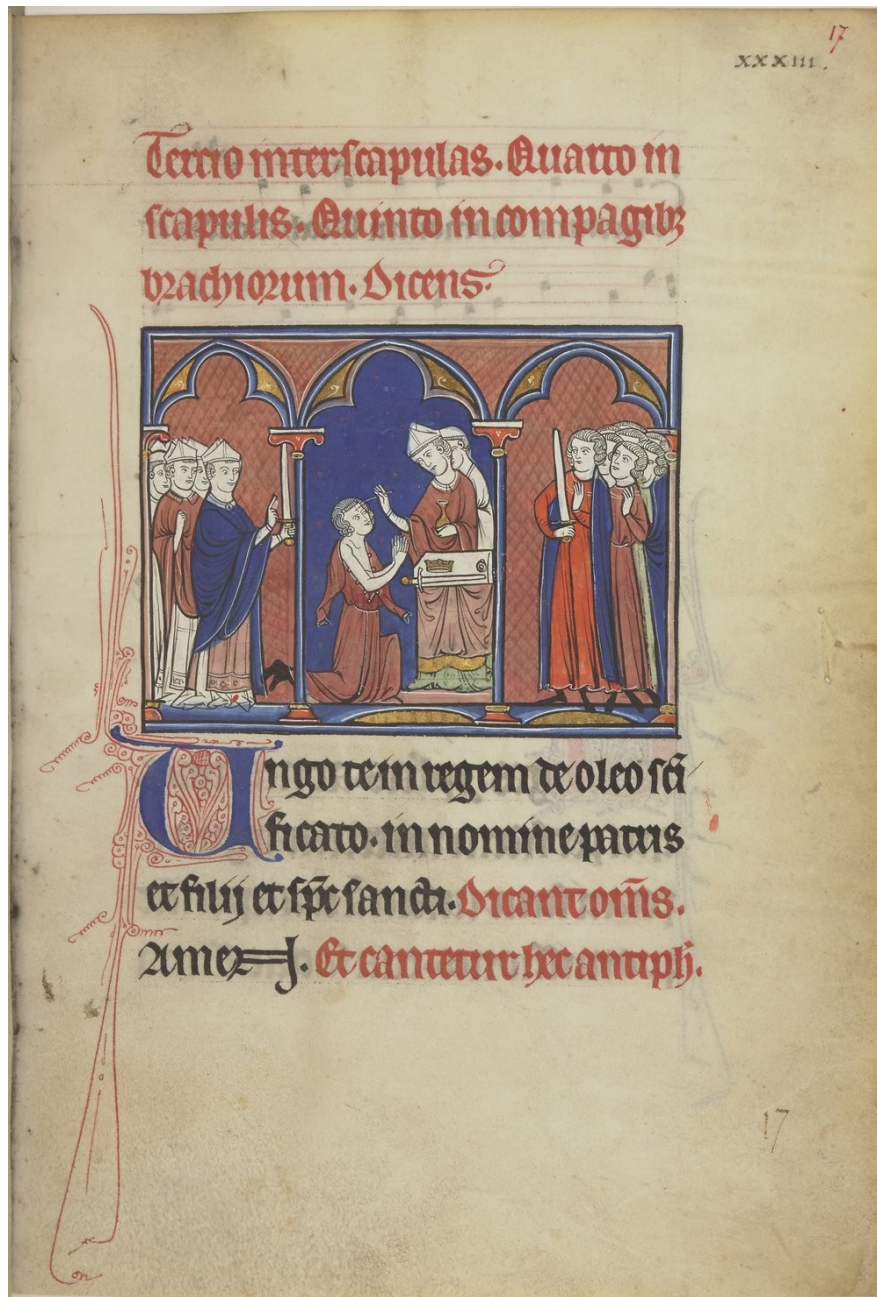 17
xxxiii.
Tercio inter scapulas. Quarto in
scapulis. Quinto in compagibꝫ
brachiorum. Dicens.
Ungo te in regem de oleo sc̄i
ficato. in nomine patris
et filij et sp̄c sancti. Dicant om̄s.
Amen. Et cantetur hec antiph̄.
17